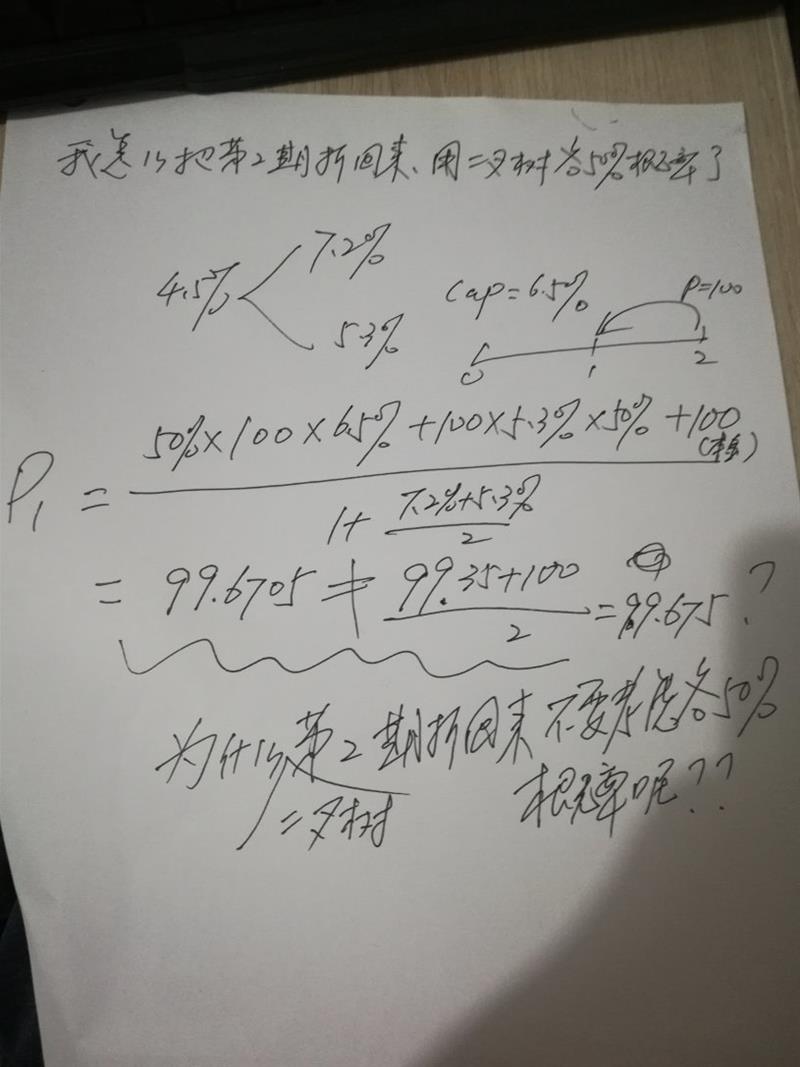 我怎么把第2期折回来、用二叉树各50%概率了
7.2%
4.5%
5.3%
Cap=6.5%
P=100
0 1 2
P₁ = (50%×100×6.5%+100×5.3%×50%+100(本金)) / (1+(7.2%+5.3%)/2)
= 99.6705 ≠ (99.35+100)/2 = 99.675?
为什么第2期折回来不要考虑各50%
二叉树
概率呢??